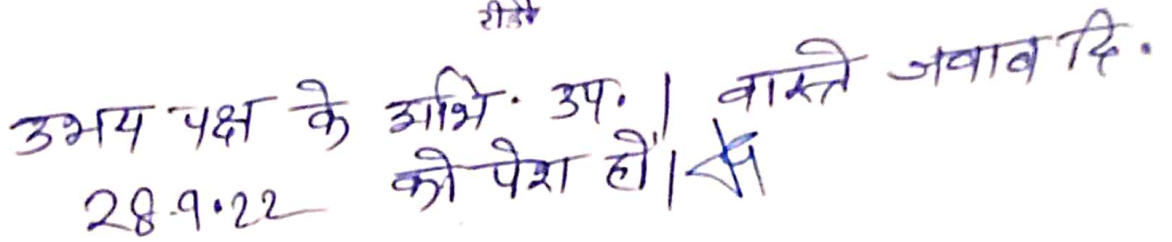 रीडर
उभय पक्ष के अभि. उप. । वास्ते जवाब दि.
28.9.22 को पेश हों।